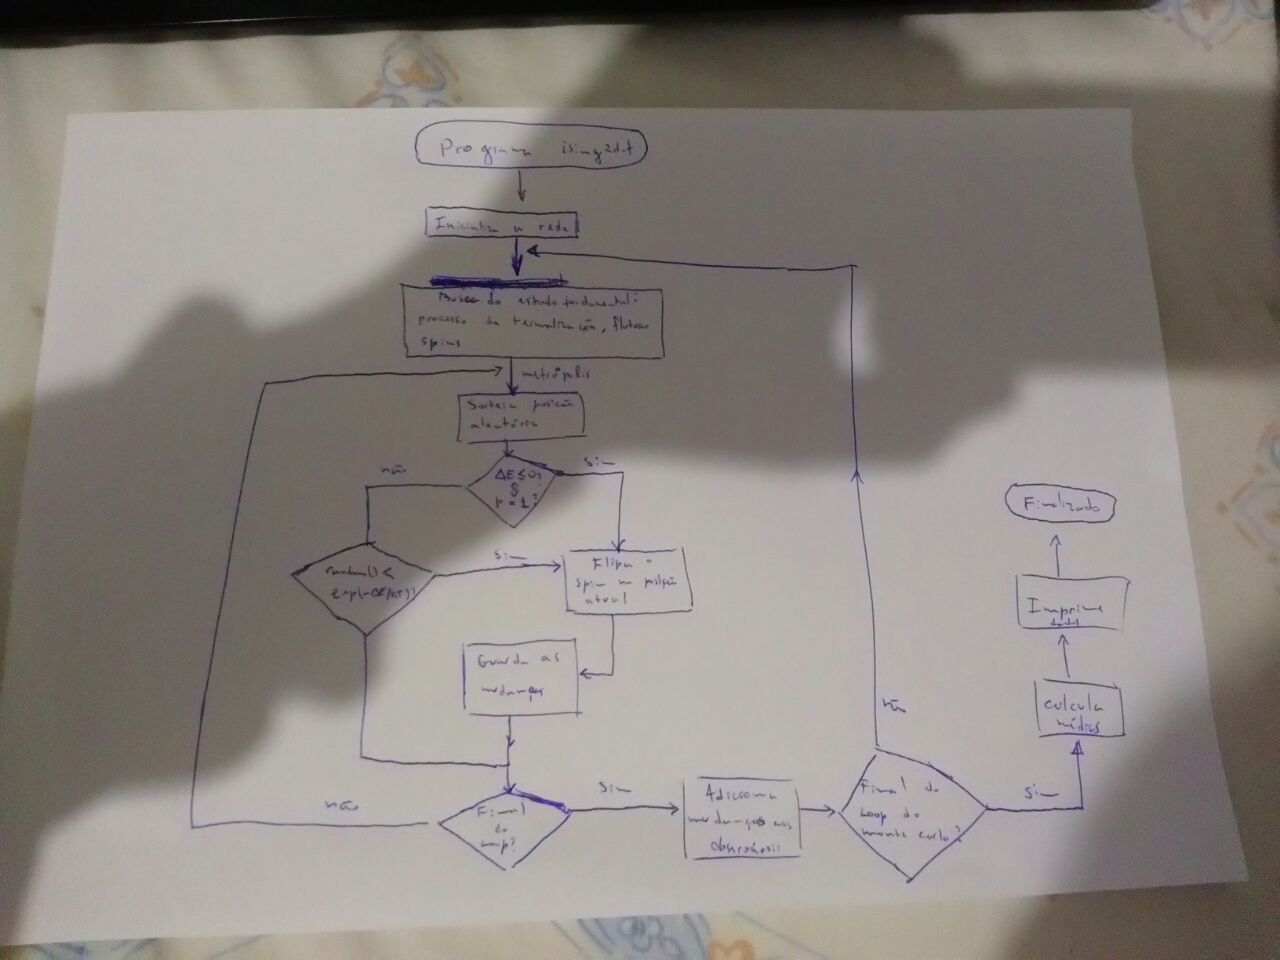 Programa ising2d.f
Inicializa a rede
Busca do estado fundamental:
processo de termalização, flutuar
spins
metrópolis
Sorteia posição
aleatória
não
sim
ΔE ≤ 0?
p = 1?
random() <
exp(-ΔE/KT)?
sim
Flipa o
spin na posição
atual
Guarda as
mudanças
não
Final
do
loop?
sim
Adiciona
mudanças nos
observáveis
não
Final do
Loop do
monte carlo?
sim
calcula
médias
Imprime
dados
Finalizado